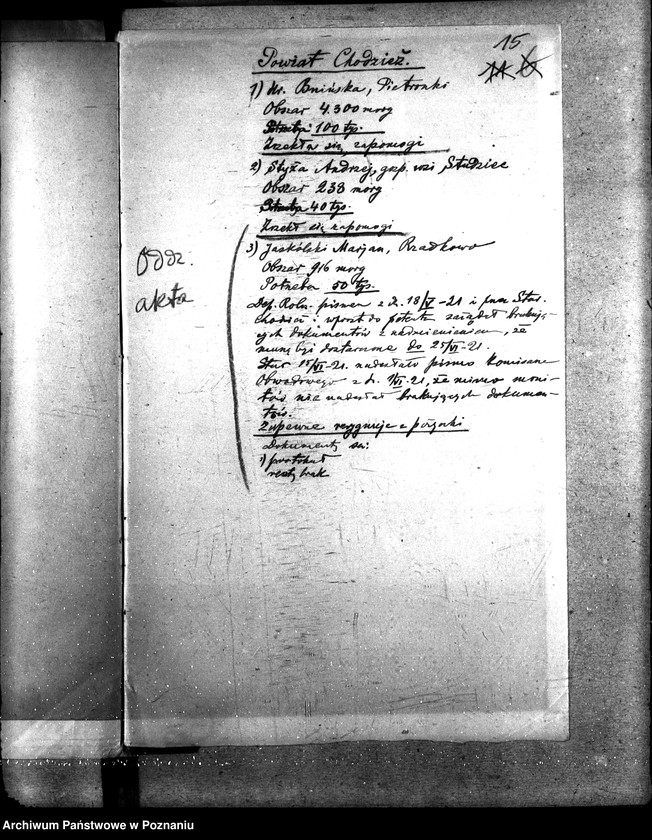 15
Powiat Chodzież.
1) Hr. Bnińska, Pietronki
Obszar 4.300 morg
Potrzeba 100 tys.
Zrzekła się zapomogi
2) Styza Andrzej, gosp. wsi Studziec
Obszar 238 morg
Potrzeba 40 tys.
Zrzekł się zapomogi
3) Jaskólski Marjan, Rzadkowo
Obszar 916 morg
Potrzeba 50 tys.
Oddz.
akta
Dep. Roln. pismem z d. 18/V-21 i przez Star.
Chodzież i wprost do petenta zażądał brakują-
cych dokumentów z nadmienieniem, że
muszą być dostarczone do 25/VI-21.
Star 15/VI-21. nadesłało pismo Komisarza
Obwodowego z d. /VI-21, że mimo moni-
tów nie nadesłał brakujących dokumen-
tów.
Zupewne rezygnuje z pożyczki
Dokumenty są:
1) protokuł
reszty brak
Archiwum Państwowe w Poznaniu